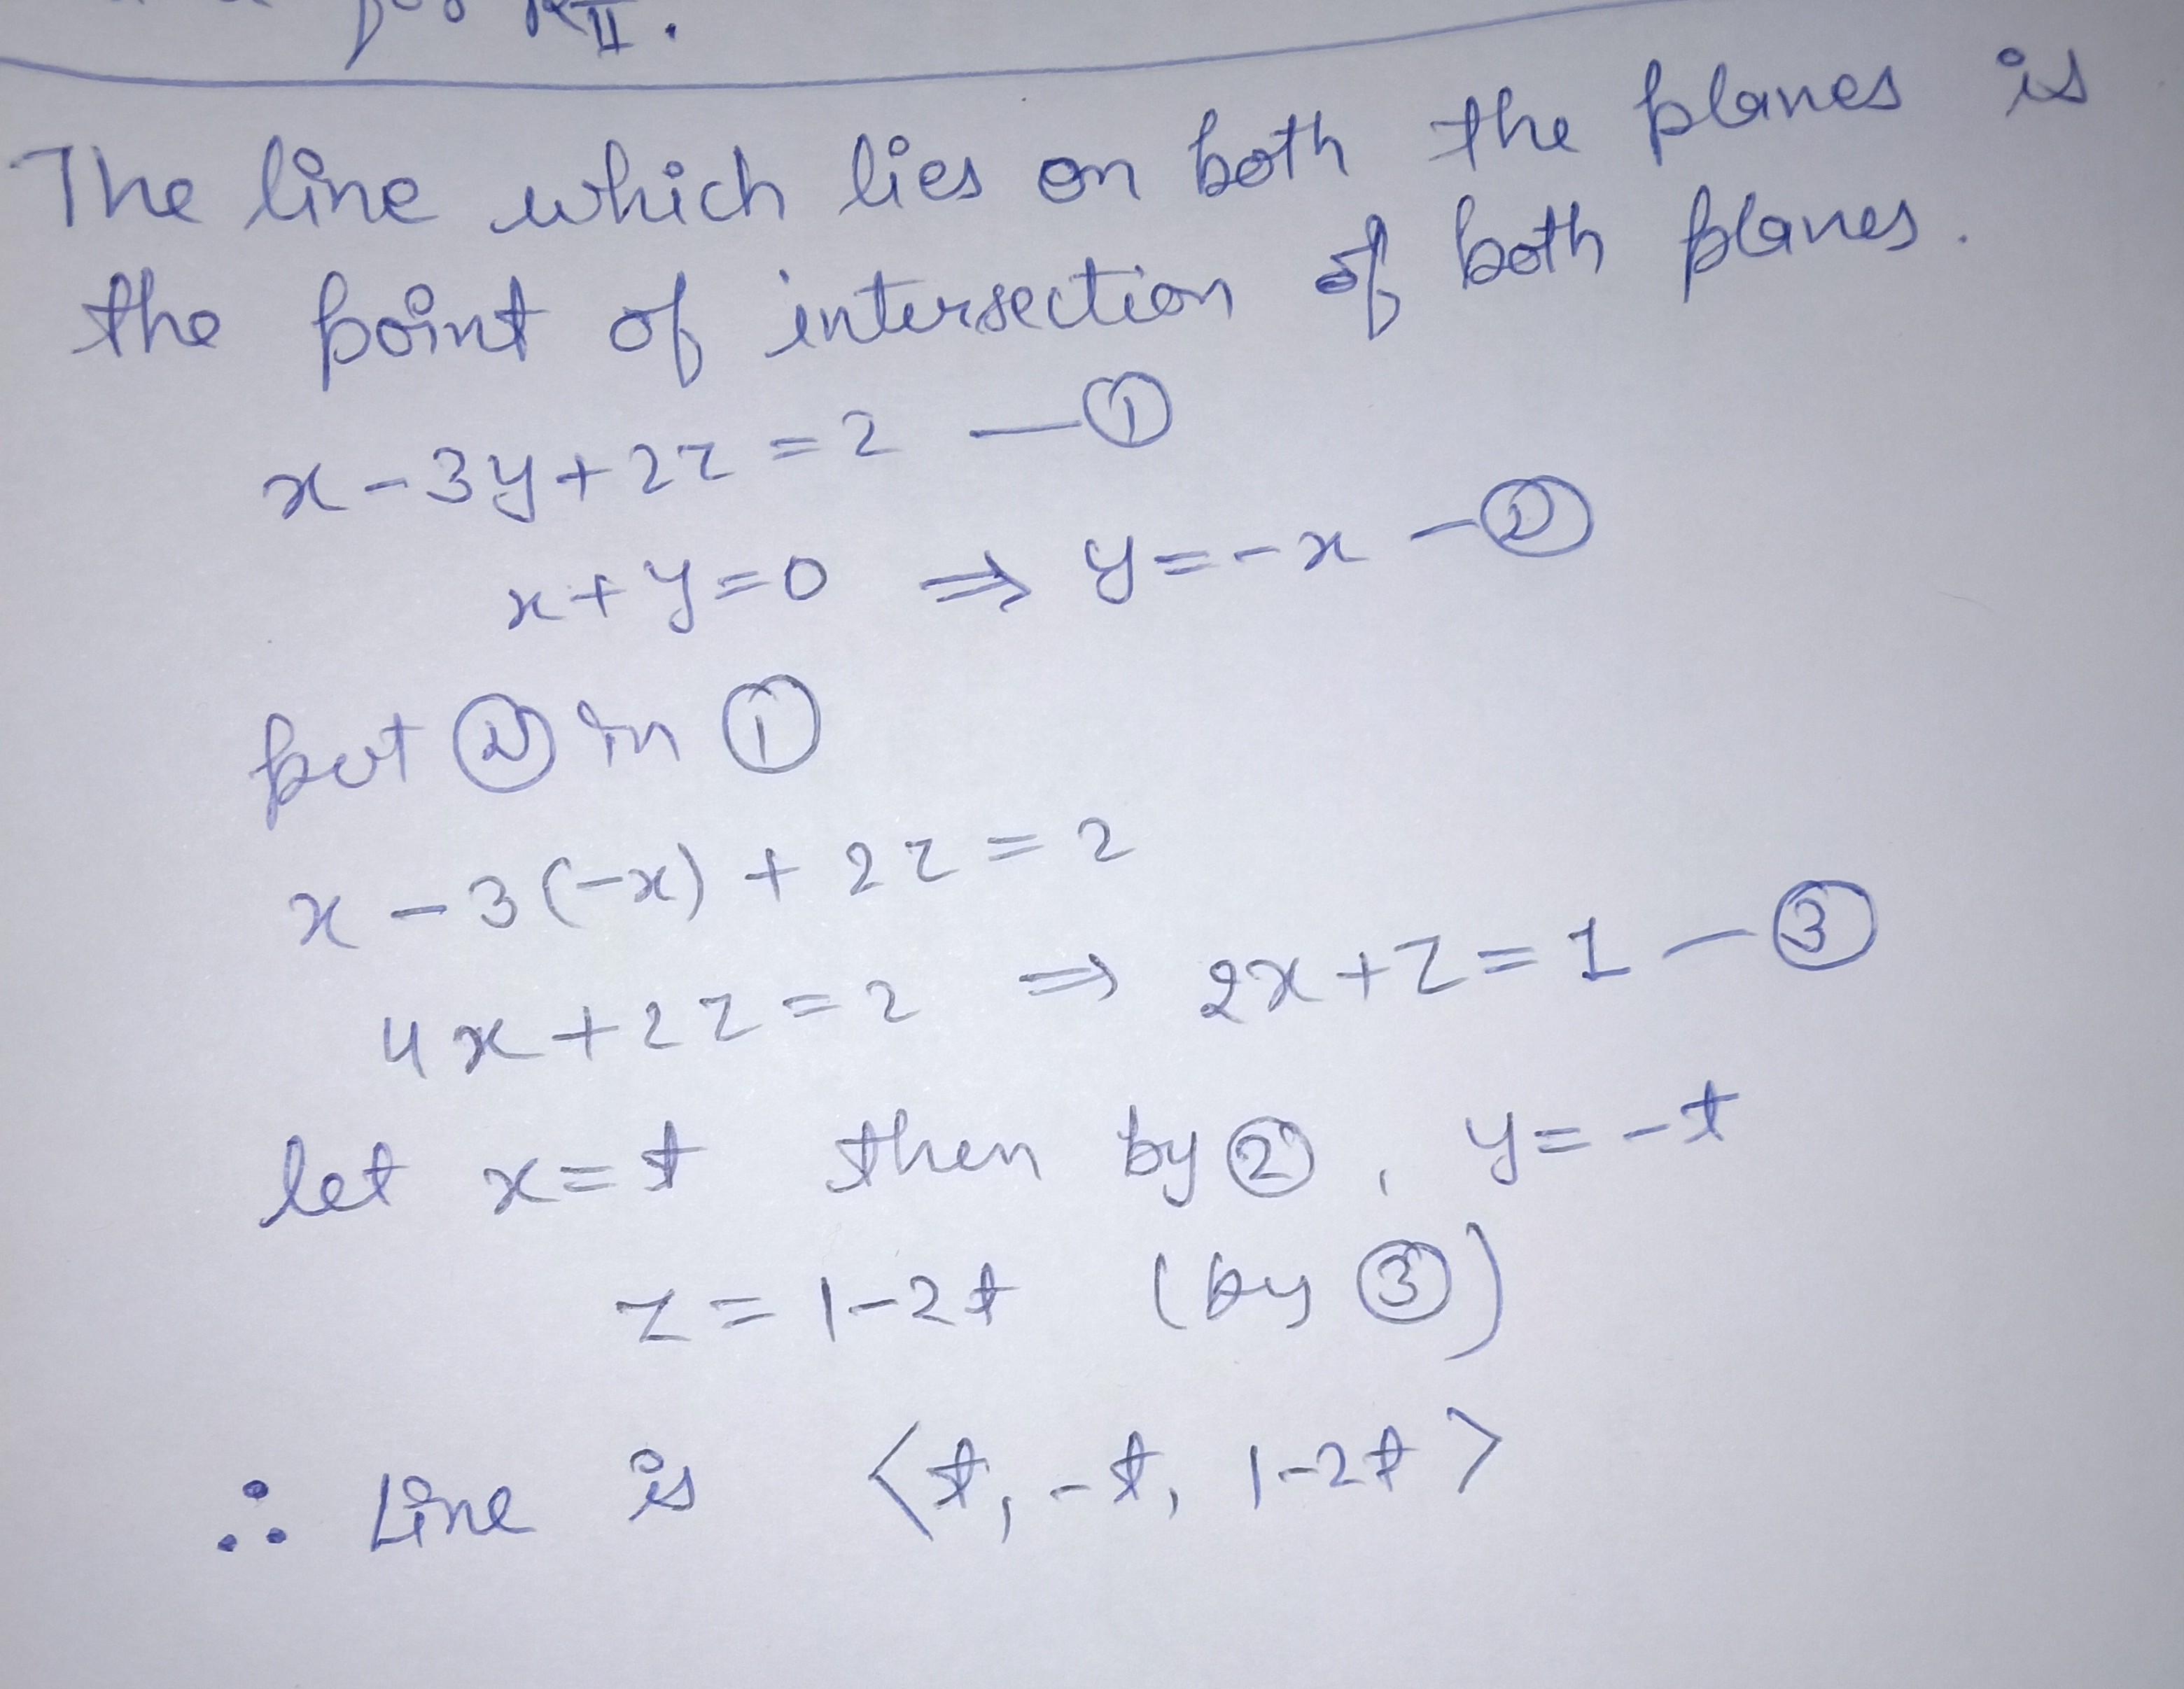 II.
The line which lies on both the planes is
the point of intersection of both planes.
x-3y+2z=2 —①
x+y=0 ⇒ y=-x -②
put ② in ①
x-3(-x)+2z=2
4x+2z=2 ⇒ 2x+z=1 -③
let x=t then by ②, y=-t
z=1-2t (by ③)
∴ Line is <t, -t, 1-2t>